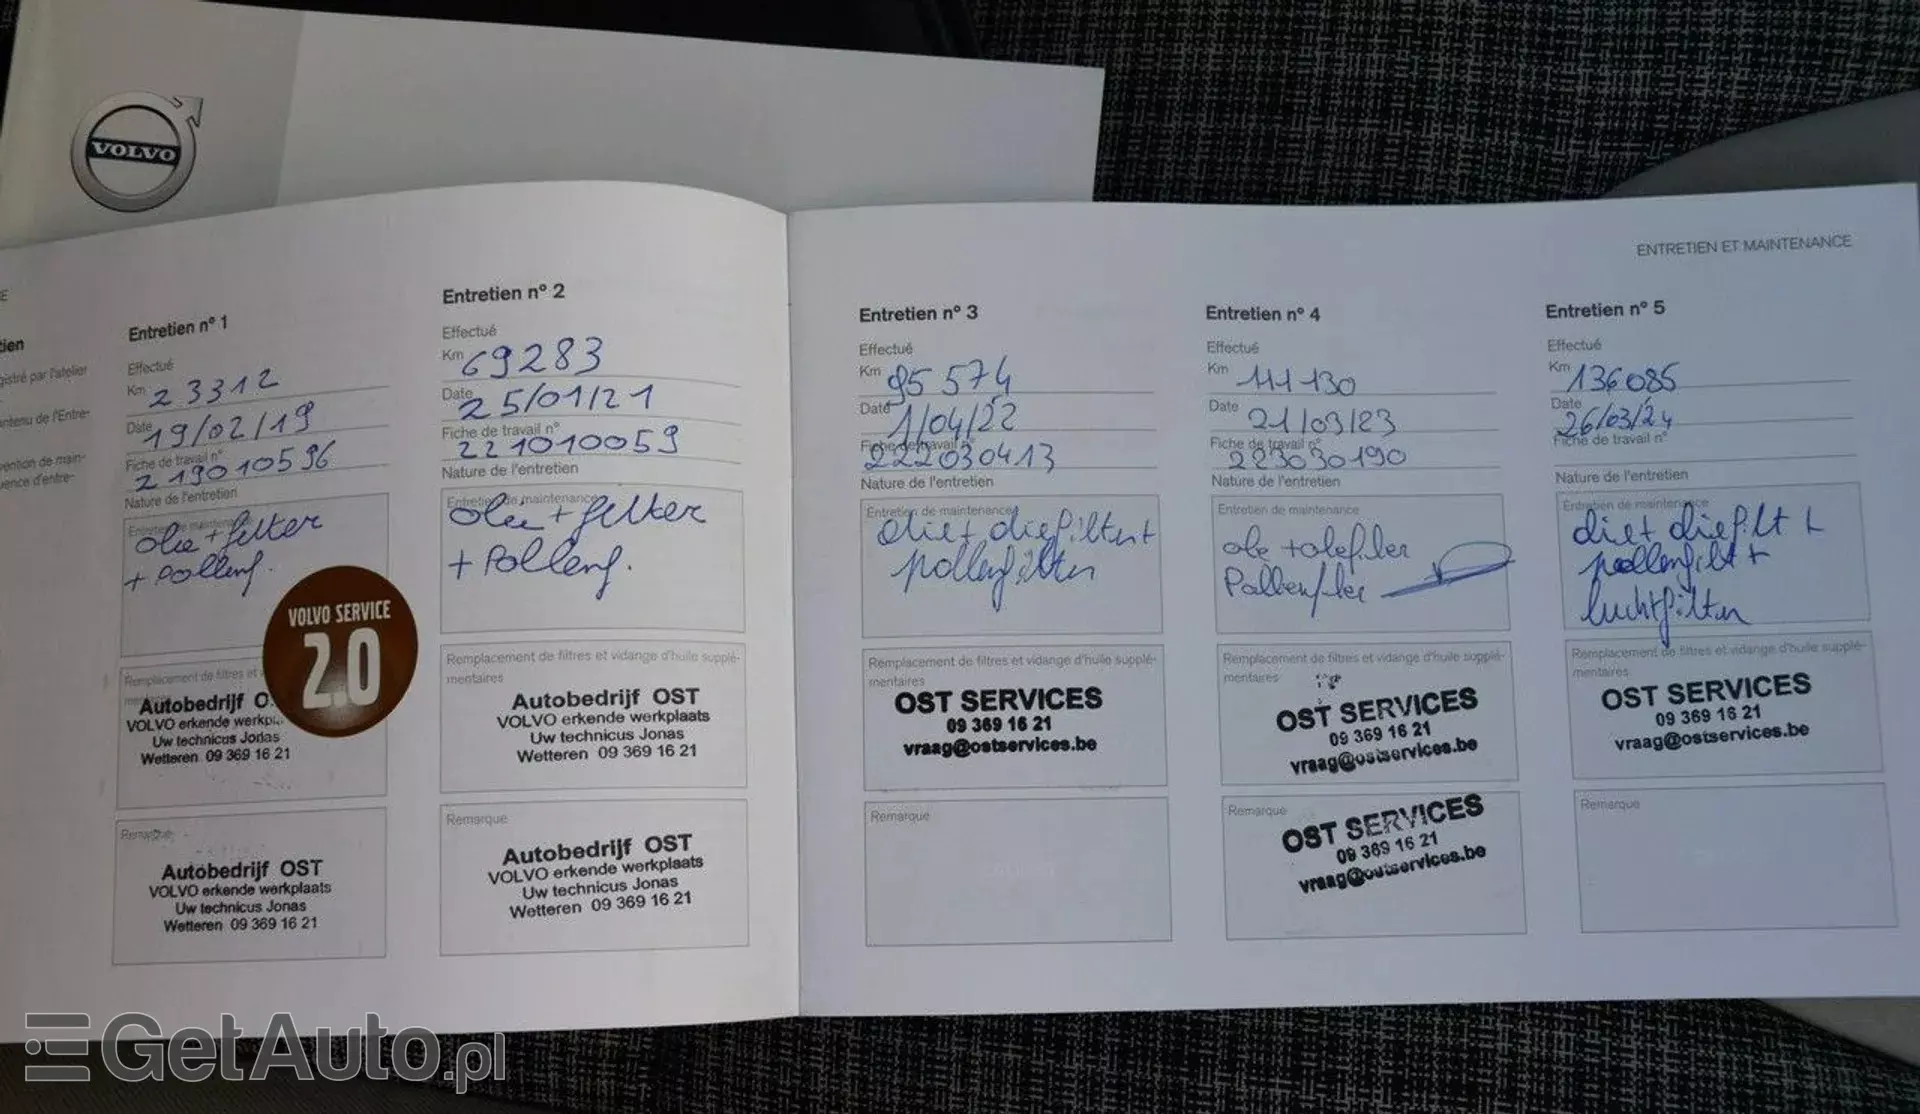 VOLVO
ENTRETIEN ET MAINTENANCE
E
tien
gistré par l'atelier
ntenu de l'Entre-
ention de main-
uence d'entre-
Entretien n° 1
Effectué
Km 23312
Date 19/02/19
Fiche de travail n°
219010596
Nature de l'entretien
Entretien de maintenance
olie + filter
+ Pollenf.
VOLVO SERVICE
2.0
Remplacement de filtres et
Autobedrijf O
VOLVO erkende werkpl
Uw technicus Jonas
Wetteren 09 369 16 21
Remarque
Autobedrijf OST
VOLVO erkende werkplaats
Uw technicus Jonas
Wetteren 09 369 16 21
Entretien n° 2
Effectué
Km 69283
Date 25/01/21
Fiche de travail n°
221010059
Nature de l'entretien
Entretien de maintenance
olie + filter
+ Pollenf.
Remplacement de filtres et vidange d'huile supplé-
mentaires
Autobedrijf OST
VOLVO erkende werkplaats
Uw technicus Jonas
Wetteren 09 369 16 21
Remarque
Autobedrijf OST
VOLVO erkende werkplaats
Uw technicus Jonas
Wetteren 09 369 16 21
Entretien n° 3
Effectué
Km 95574
Date 1/04/22
Fiche de travail n°
222030413
Nature de l'entretien
Entretien de maintenance
olie+ oliefilter+
pollenfilter
Remplacement de filtres et vidange d'huile supplé-
mentaires
OST SERVICES
09 369 16 21
vraag@ostservices.be
Remarque
Entretien n° 4
Effectué
Km 111130
Date 21/03/23
Fiche de travail n°
223030190
Nature de l'entretien
Entretien de maintenance
Remplacement de filtres et vidange d'huile supplé-
mentaires
OST SERVICES
09 369 16 21
vraag@ostservices.be
Remarque
OST SERVICES
09 369 16 21
vraag@ostservices.be
Entretien n° 5
Effectué
Km 136085
Date 26/03/24
Fiche de travail n°
Nature de l'entretien
Entretien de maintenance
olie+ oliefilt +
pollenfilt +
luchtfilter
Remplacement de filtres et vidange d'huile supplé-
mentaires
OST SERVICES
09 369 16 21
vraag@ostservices.be
Remarque
GetAuto.pl